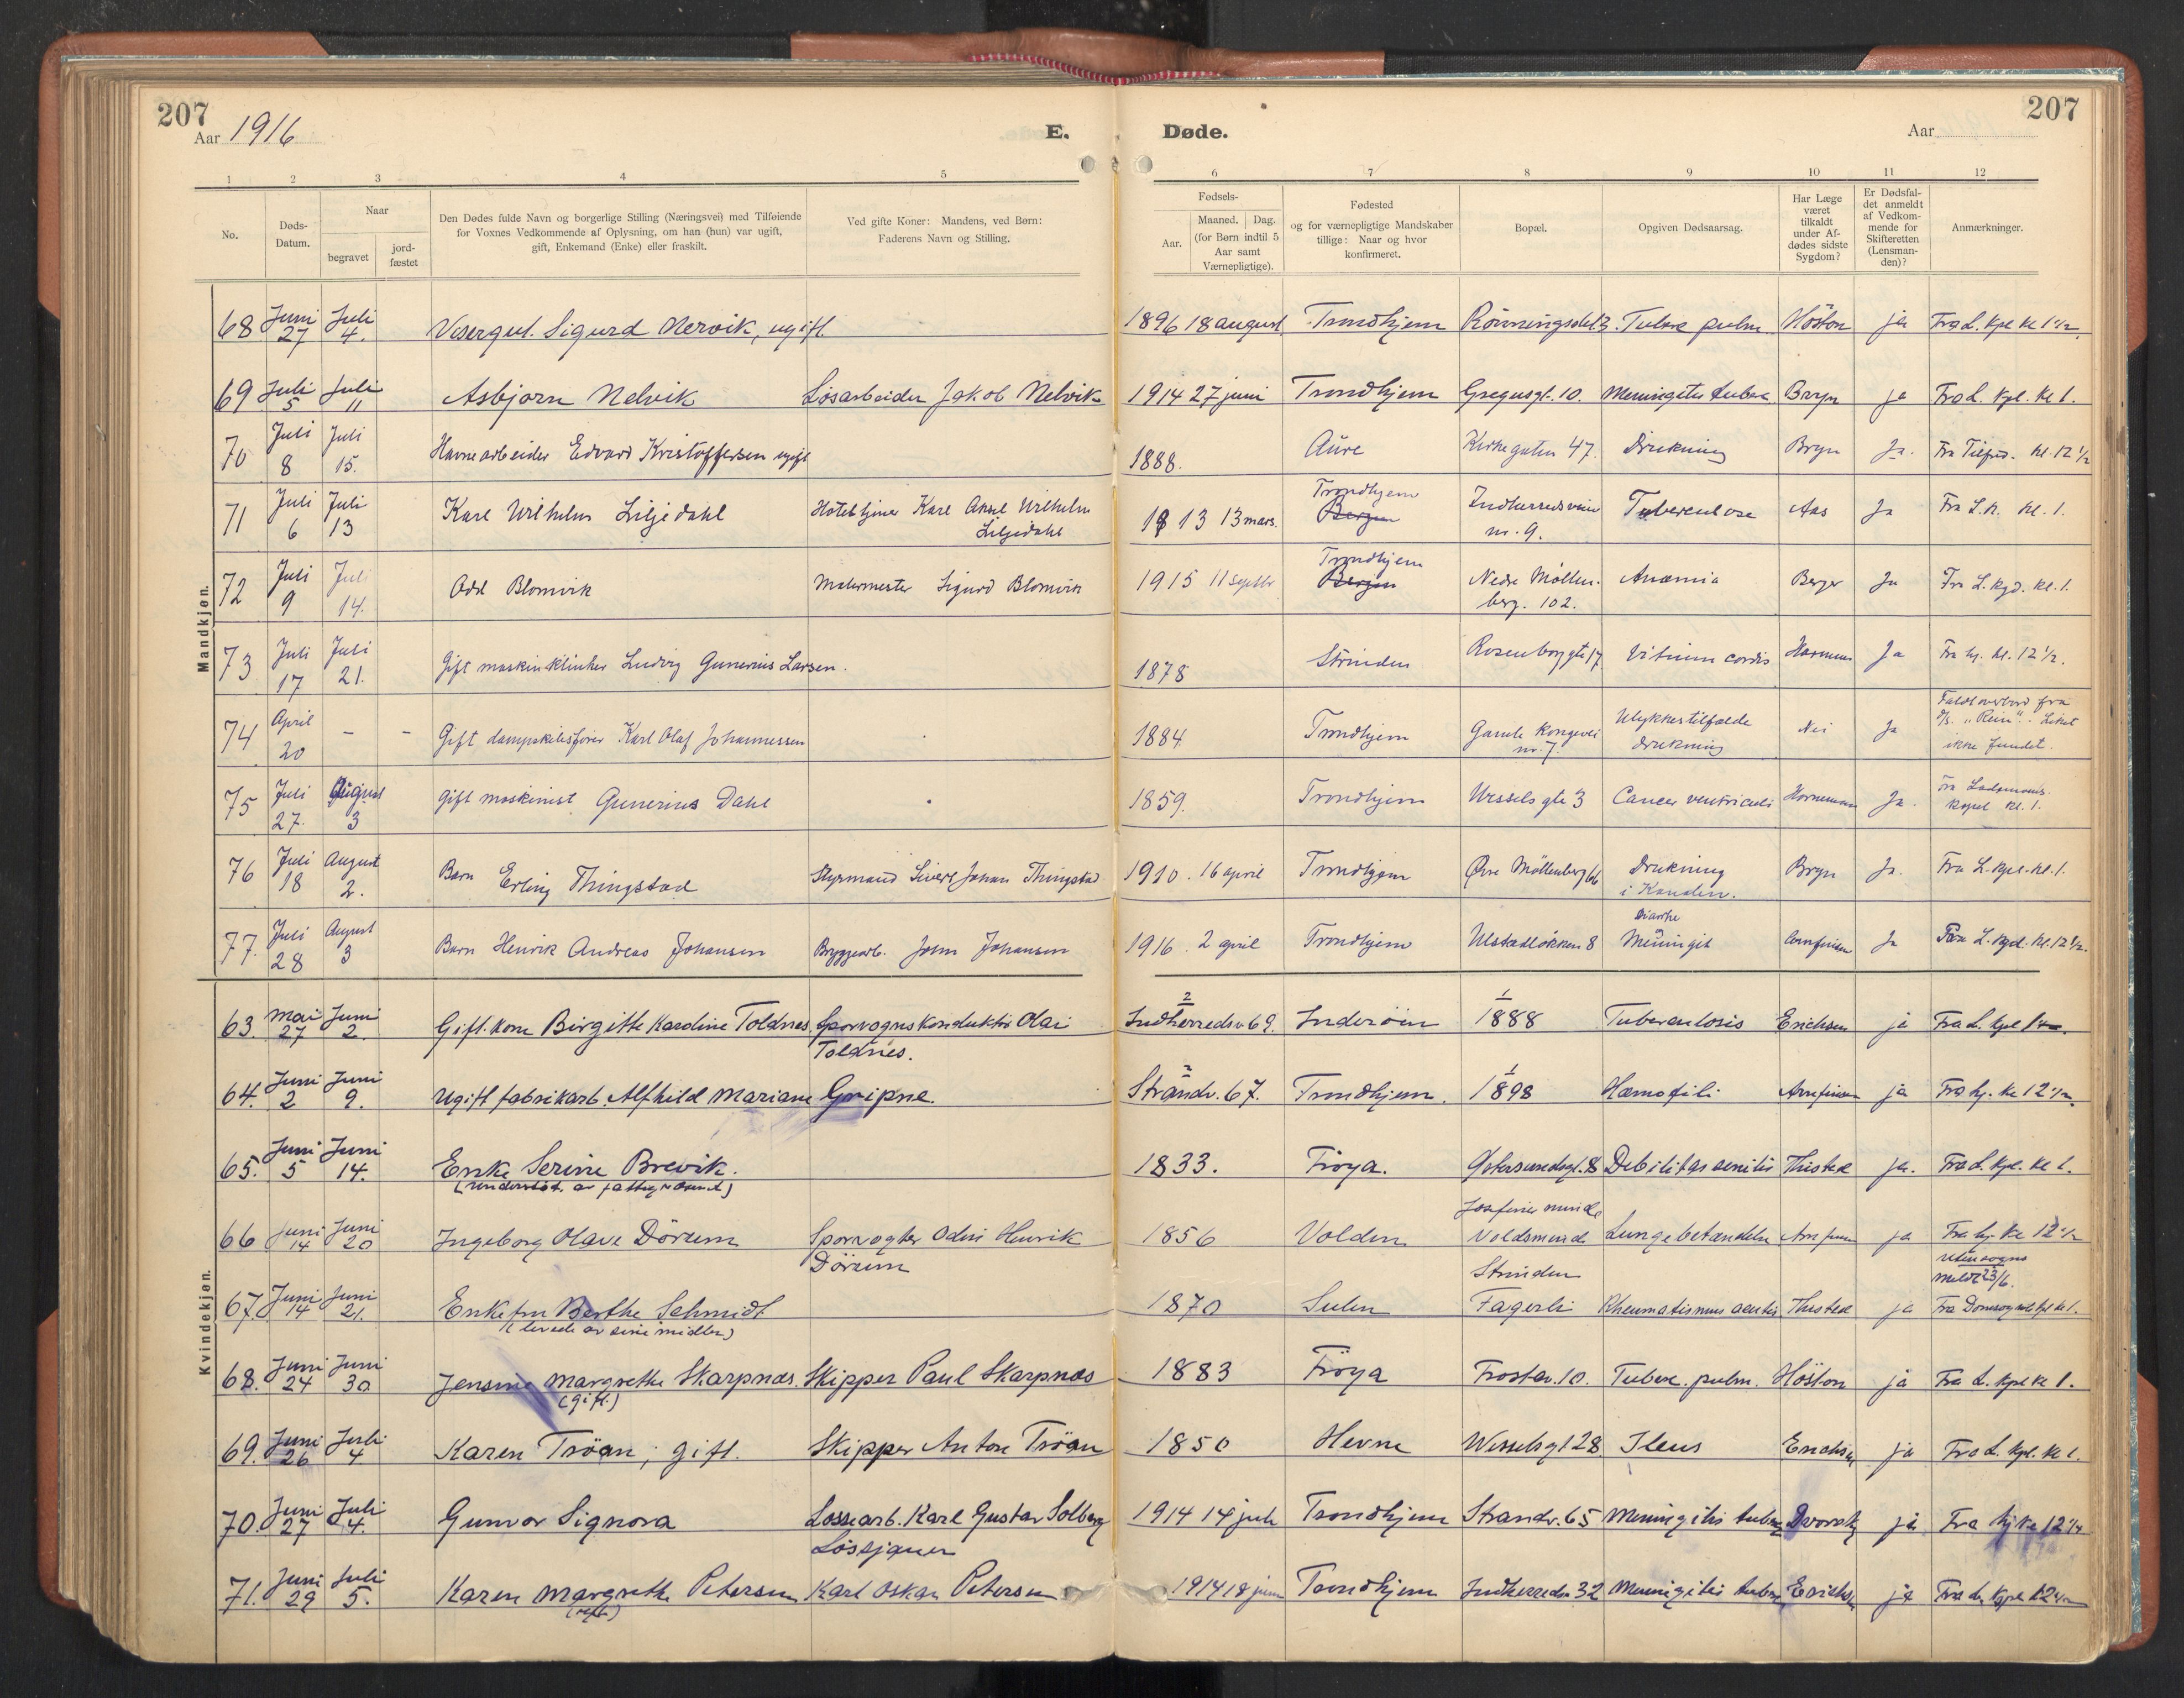 207
Aar 1916
E. Døde.
Aar
207
1 2 3 4 5 6 7 8 9 10 11 12
No.
Døds-Datum.
Naar
begravet
jord-fæstet
Den Dødes fulde Navn og borgerlige Stilling (Næringsvei) med Tilføiende
for Voxnes Vedkommende af Oplysning, om han (hun) var ugift,
gift, Enkemand (Enke) eller fraskilt.
Ved gifte Koner: Mandens, ved Børn:
Faderens Navn og Stilling.
Fødsels-
Aar.
Maaned. Dag.
(for Børn indtil 5
Aar samt
Værnepligtige).
Fødested
og for værnepligtige Mandskaber
tillige: Naar og hvor
konfirmeret.
Bopæl.
Opgiven Dødsaarsag.
Har Læge
været
tilkaldt
under Af-
dødes sidste
Sygdom?
Er Dødsfal-
det anmeldt
af Vedkom-
mende for
Skifteretten
(Lensman-
den)?
Anmærkninger.
Mandkjøn.
68 Juni 27 Juli 4. Visergut. Sigurd Nervik, ugift 1896 18 august Trondhjem Tuberc pulm Höston ja Fra L. kpl kl 1 1/2
69 Juli 5 Juli 11 Asbjørn Nelvik Løsarbeider Jakob Nelvik 1914 27 juni Trondhjem Gregusgt. 10. Meningitis tuberc. Bryn ja Fra L. kpl. kl 1.
70 Juli 8 Juli 15. Havnearbeider Edvard Kristoffersen ugift 1888. Aure Kirkegaten 47. Drukning Bryn Ja. Fra Tilfred. kl. 12 1/2
71 Juli 6 Juli 13 Karl Wilhelm Liljedahl Hoteltjener Karl Aksel Wilhelm
Liljedahl 1913 13 mars. Trondhjem Bergen Indherredsveien
nr. 9. Tuberculose Aas Ja Fra L.K. kl. 1.
72 Juli 9 Juli 14. Odd Blomvik Malermester Sigurd Blomvik 1915 11 septbr Trondhjem Bergen Nedre Möllen-
berg. 102. Anæmia Berger Ja Fra L. kpl. kl. 1.
73 Juli 17 Juli 21. Gift maskinklinker Ludvig Gunerius Larsen. 1878 Strinden Rosenborggt 17 Vitium cordis Ja Fra hj. kl. 12 1/2.
74 April 20 - - Gift dampskibsfører Karl Olaf Johannessen 1884 Trondhjem Gamle Kongevei
nr. 7. Ulykkestilfælde
drukning Nei Ja Faldt overbord fra
D/S. "Rein". - Liket
ikke fundet.
75 Juli 27. August 3 Gift maskinist Gunerius Dahl 1859. Trondhjem Wessels gt 3 Cancer ventriculi Hornemann Ja. Fra Lademoens.
kapel kl. 1.
76 Juli 18 August 2. Barn Erling Thingstad Styrmand Sivert Johan Thingstad 1910. 16 april Trondhjem Øvre Möllenberg 66 Drukning
i Kanalen. Bryn Ja. Fra L. kpl. kl. 1.
77. Juli 28 August 3 Barn Henrik Andreas Johansen Bryggearb. John Johansen 1916. 2 april Trondhjem Ulstadløkken 8 Diarrhe
Meningit Ja Fra L. kpl. kl. 12 1/2.
Kvindekjøn.
63. Mai 27 Juni 2. Gift. Kone Birgitte Karoline Toldnes. Sporvognskonduktør Olai
Toldnes. 2 Indherredsv. 69. Inderøen 1 1888 Tuberculosis Erichsen ja Fra L. kpl
64. Juni 2 Juni 9. Ugift fabrikarb. Alfhild Mariane Gripne. 2 Strandv. 67. Trondhjem. 1 1898 Hæmofili Arnfinsen ja Fra hj. kl 12 1/2.
65. Juni 5 Juni 14. Enke Serine Brevik.
(understöt. av fattigvæsenet) 1833. Fröya. Debilitas senilis Thisted ja. Fra L. kpl. kl 1.
66 Juni 14 Juni 20 Ingeborg Olave Dörum Sporvogter Odin Henrik
Dörum 1856 Volden Josefines minde
Voldsminde
Strinden Lungebetændelse ja Fra hj. kl 12 1/2
utensogns
meldt 23/6.
67. Juni 14 Juni 21. Enkefru Berthe Schmidt
(levede av sine midler) 1870 Fagerli Rheumatismus acutis Thisted ja
68. Juni 24 Juni 30 Jensine Margrethe Skarpnæs.
(gift.) Skipper Paul Skarpnæs 1883 Fröya Frostav. 10. Tuberc. pulm. Höston ja Fra L. kpl kl 1.
69. Juni 26 Juli 4 Karen Tröan, gift. Skipper Anton Tröan 1850 Hevne Wesselsgt 28 Ileus Erichsen ja Fra L. kpl. kl 1.
70. Juni 27 Juli 4. Gunvor Signora Lossearb. Karl Gustav Solberg 1914 14 juli Trondhjem Strandv. 65 Meningitis tuberc. Dvorsky ja Fra hj kl 12 1/2
71. Juni 29 Juli 5. Karen Margrethe Petersen Lossjauer
Karl Oskar Petersen 1914 18 juni Trondhjem Indherredsv 32 Meningitis tuberc. Erichsen ja Fra L. kpl 12 1/2